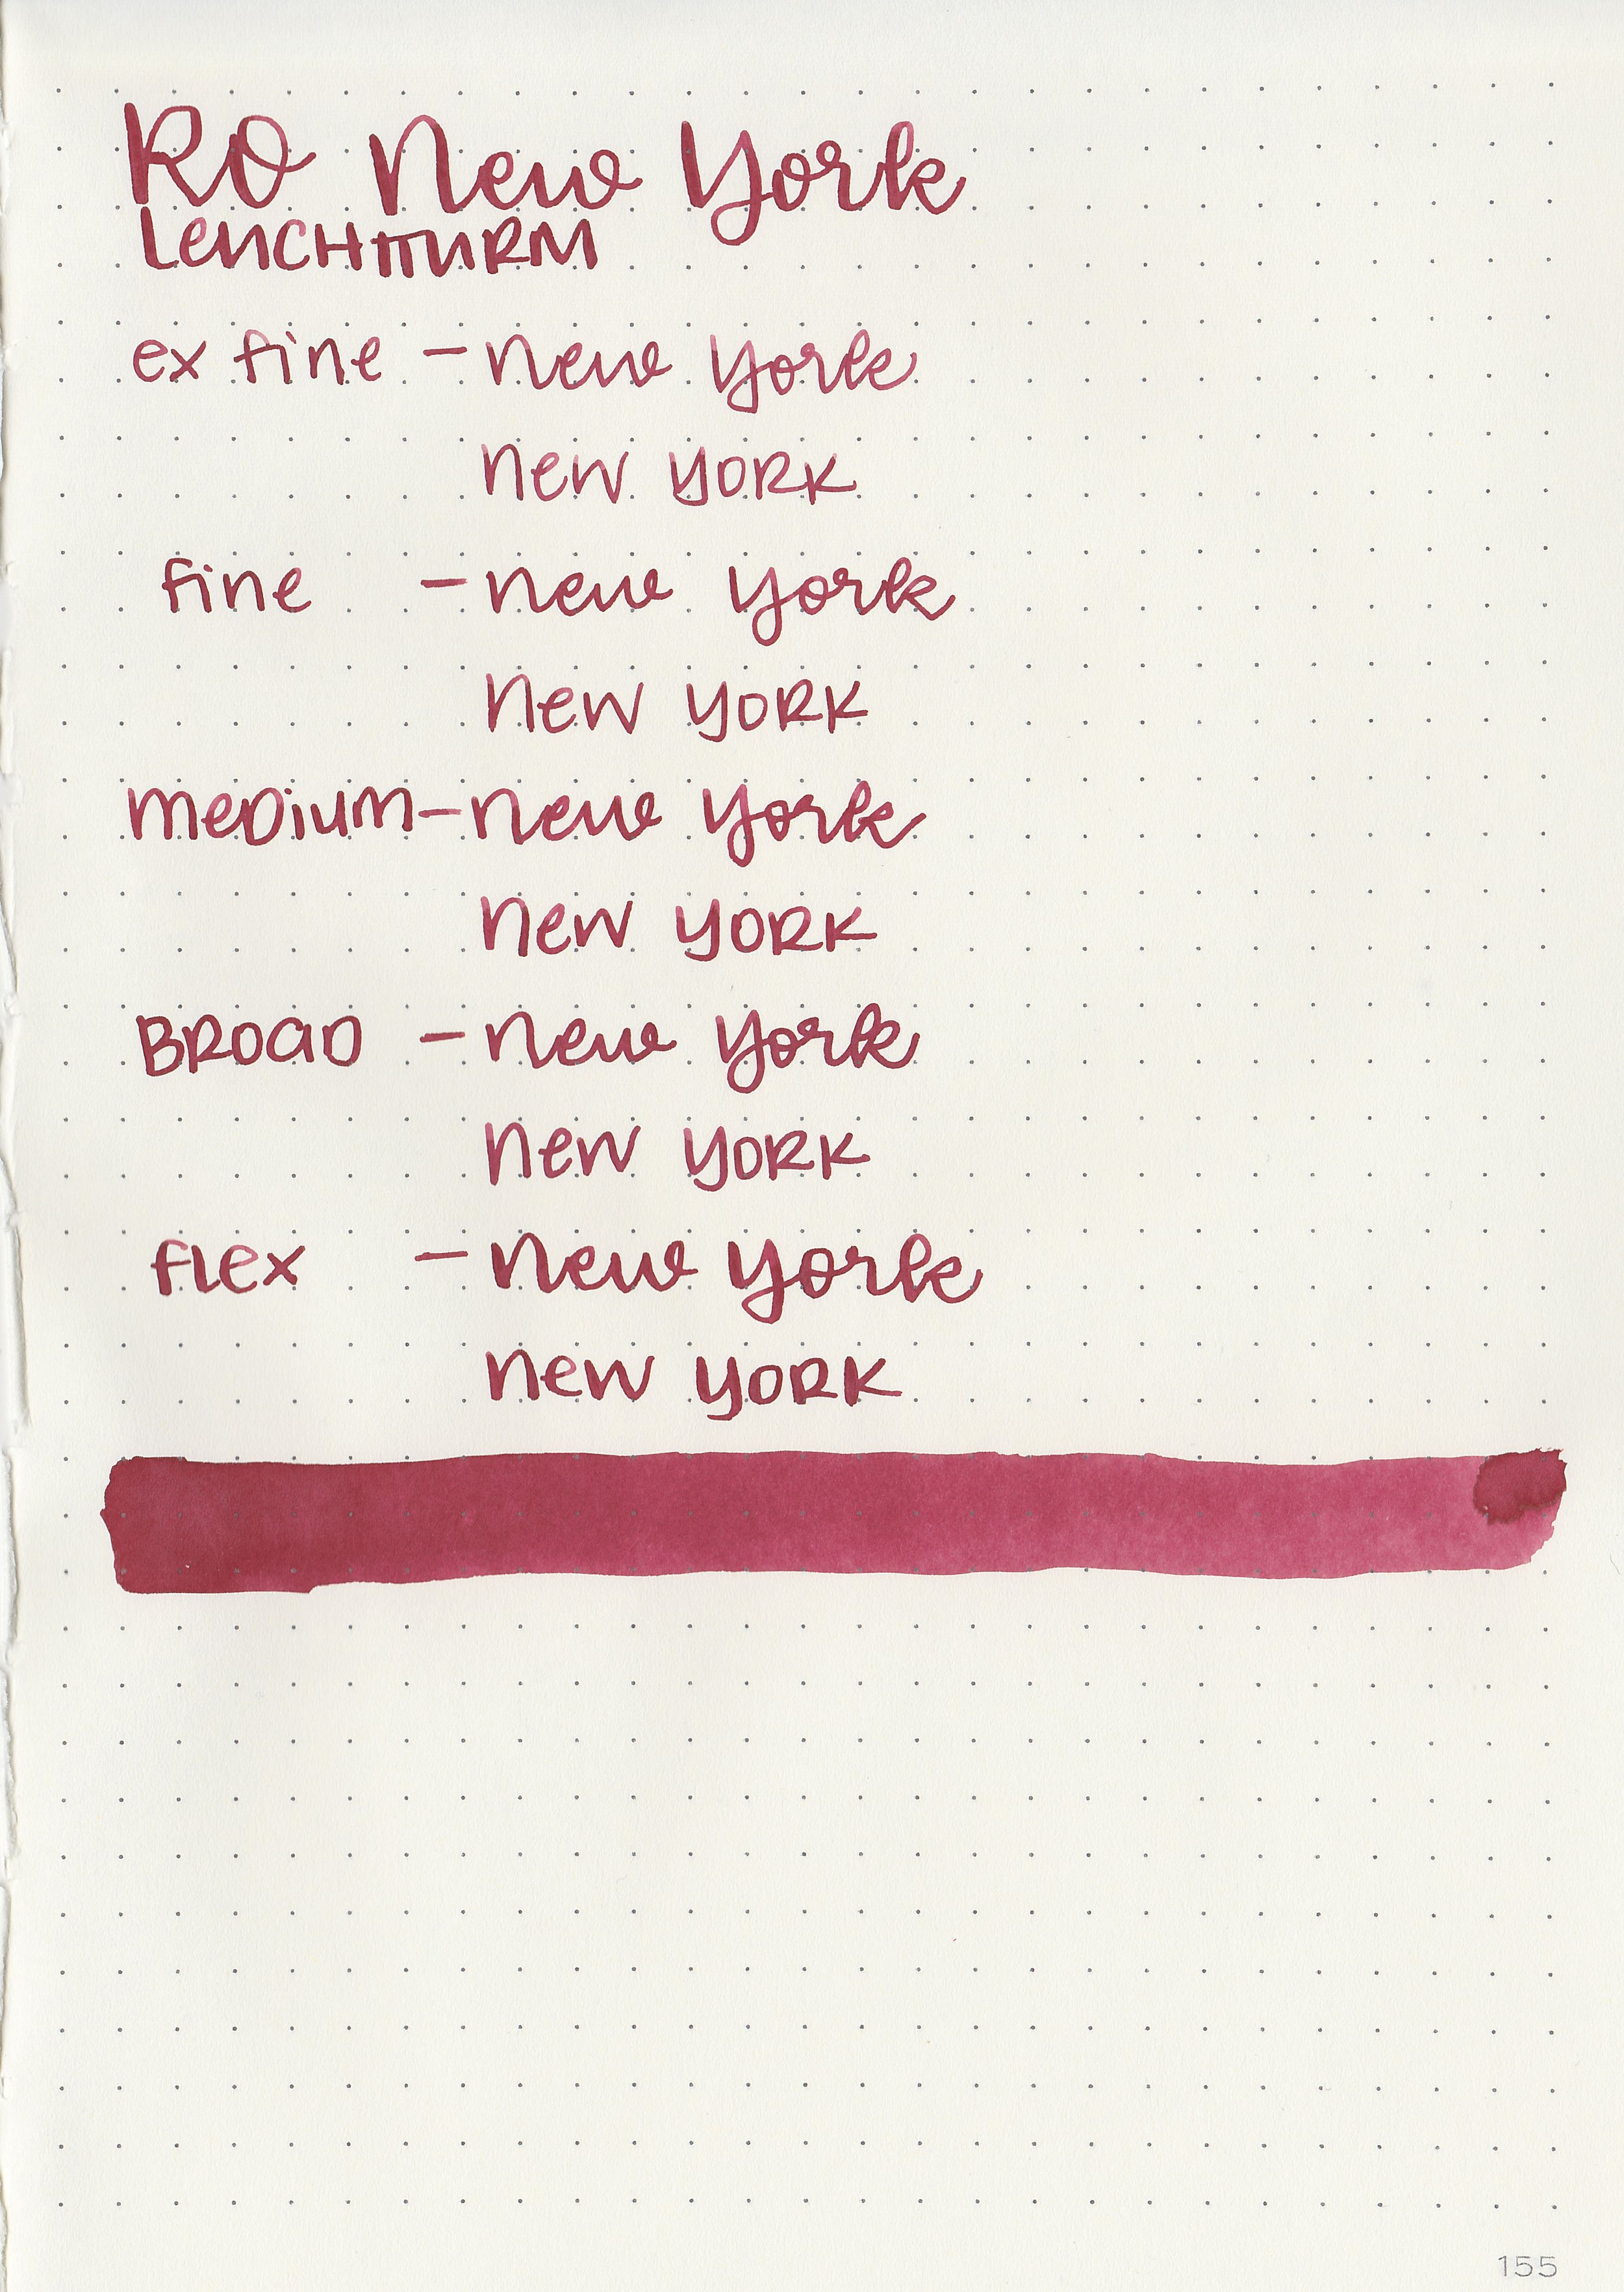 RO New York
LeuCHTTURM
ex fine - new York
new YORK
fine - new York
new YORK
meDium - new York
new YORK
BROaD - new York
new YORK
flex - new York
new YORK
155